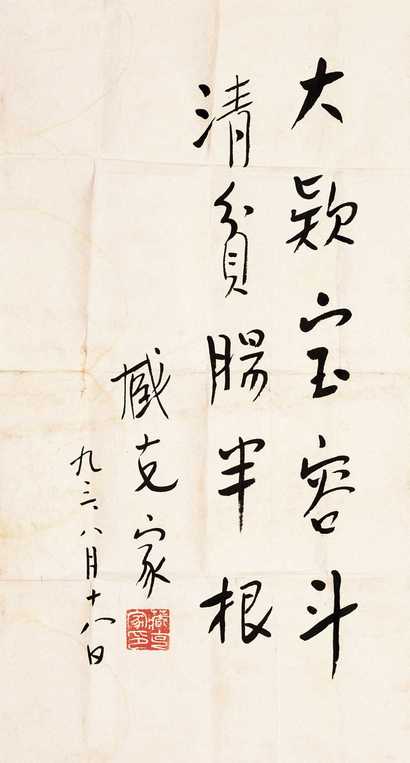 大欵宝容斗
清貧腸半根
臧克家
九三、八月十八日
臧克家印